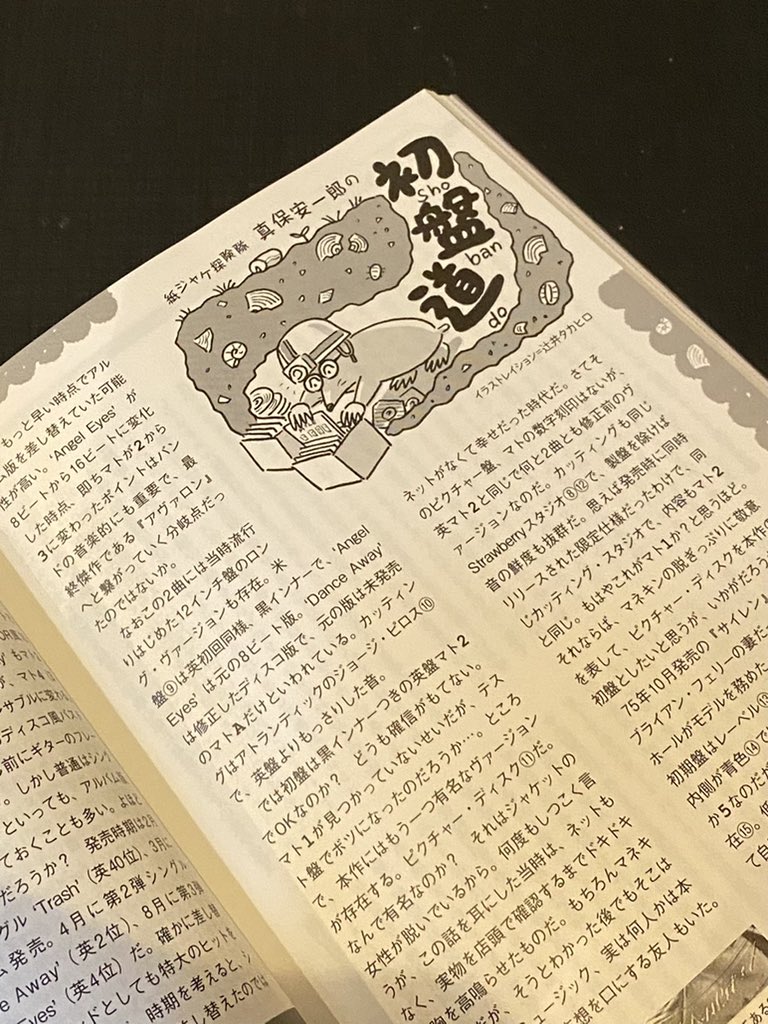 紙ジャケ探険隊 真保安一郎の
初盤道
Sho
ban
do
イラストレイション=辻井タカヒロ
もっと早い時点でアル
ム版を差し替えていた可能
性が高い。'Angel Eyes' が
8ビートから16ビートに変化
した時点、即ちマトが2から
3に変わったポイントはバン
ドの音楽的にも重要で、最
終傑作である『アヴァロン』
へと繋がっていく分岐点だっ
たのではないか。
なおこの2曲には当時流行
りはじめた12インチ盤のロン
グ・ヴァージョンも存在。米
盤⑨は英初回同様、黒インナーで、'Angel
Eyes' は元の8ビート版。'Dance Away'
は修正したディスコ版で、元の版は未発売
のマトAだけといわれている。カッティン
グはアトランティックのジョージ・ピロス⑩
で、英盤よりもっさりした音。
では初盤は黒インナーつきの英盤マト2
でOKなのか? どうも確信がもてない。
マト1が見つかっていないせいだが、テス
ト盤でボツになったのだろうか…。ところ
で、本作にはもう一つ有名なヴァージョン
が存在する。ピクチャー・ディスク⑪だ。
なんで有名なのか? それはジャケットの
女性が脱いでいるから。何度もしつこく言
うが、この話を耳にした当時は、ネットも
なく、実物を店頭で確認するまでドキドキ
胸を高鳴らせたものだ。もちろんマネキ
だが、そうとわかった後でもそこは
ュージック、実は何人かは本
想を口にする友人もいた。
ネットがなくて幸せだった時代だ。さてそ
のピクチャー盤、マトの数字刻印はないが、
英マト2と同じで何と2曲とも修正前のヴ
ァージョンなのだ。カッティングも同じ
Strawberryスタジオ⑧⑫で、製盤を除けば
音の鮮度も抜群だ。思えば発売時に同時
リリースされた限定仕様だったわけで、同
じカッティング・スタジオで、内容もマト2
と同じ。もはやこれがマト1か?と思うほど。
それならば、マネキンの脱ぎっぷりに敬意
を表して、ピクチャー・ディスクを本作の
初盤としたいと思うが、いかがだろう
75年10月発売の『サイレン』
ブライアン・フェリーの妻だ
ホールがモデルを務めた
初期盤はレーベル⑬
内側が青色⑭で
か5なのだが
在⑮。低
て自
サブルに変わ
のディスコ風バス
し前にギターのフレー
。しかし普通はシング
といっても、アルバム版
ておくことも多い。よほど
だろうか? 発売時期は2月
グル 'Trash'（英40位）、3月に
ム発売。4月に第2弾シングル
ce Away'（英2位）、8月に第3弾
Eyes'（英4位）だ。確かに差し替
ドとしても特大のヒットを
時期を考えると、シ
し替えたのでは